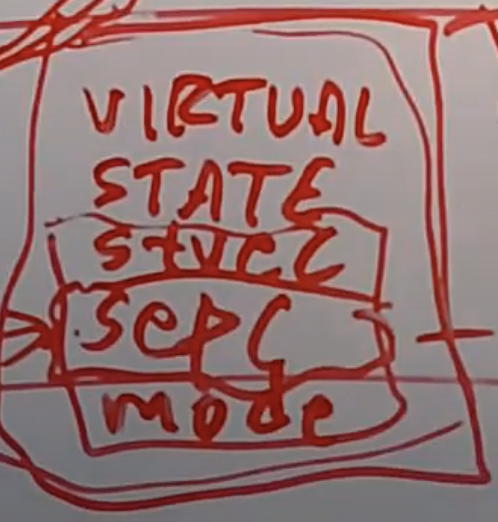 VIRTUAL
STATE
stvec
sepc
mode